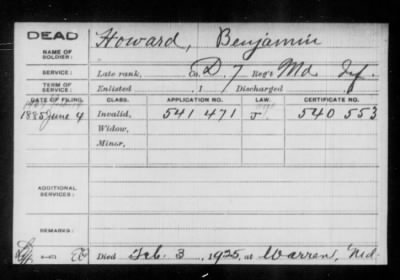 DEAD
NAME OF SOLDIER: Howard, Benjamin
SERVICE: Late rank, Co. D, 7 Reg't Md. Inf.
TERM OF SERVICE: Enlisted , 1 Discharged
DATE OF FILING. CLASS. APPLICATION NO. LAW. CERTIFICATE NO.
1885 June 4 Invalid, 541 471 540 553
Widow,
Minor,
ADDITIONAL SERVICES:
REMARKS:
Died Feb. 3, 1925, at Warren, Md.